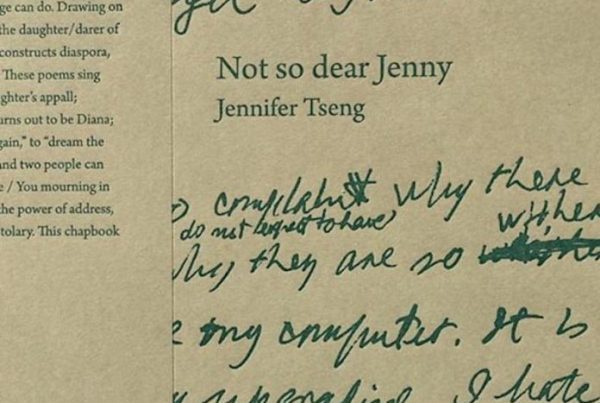 ge can do. Drawing on
the daughter/darer of
constructs diaspora,
These poems sing
ghter's appall;
urns out to be Diana;
gain," to "dream the
nd two people can
e / You mourning in
the power of address,
tolary. This chapbook
Not so dear Jenny
Jennifer Tseng
why there
do not expect to have
why they are so
my computer. It is
I hate